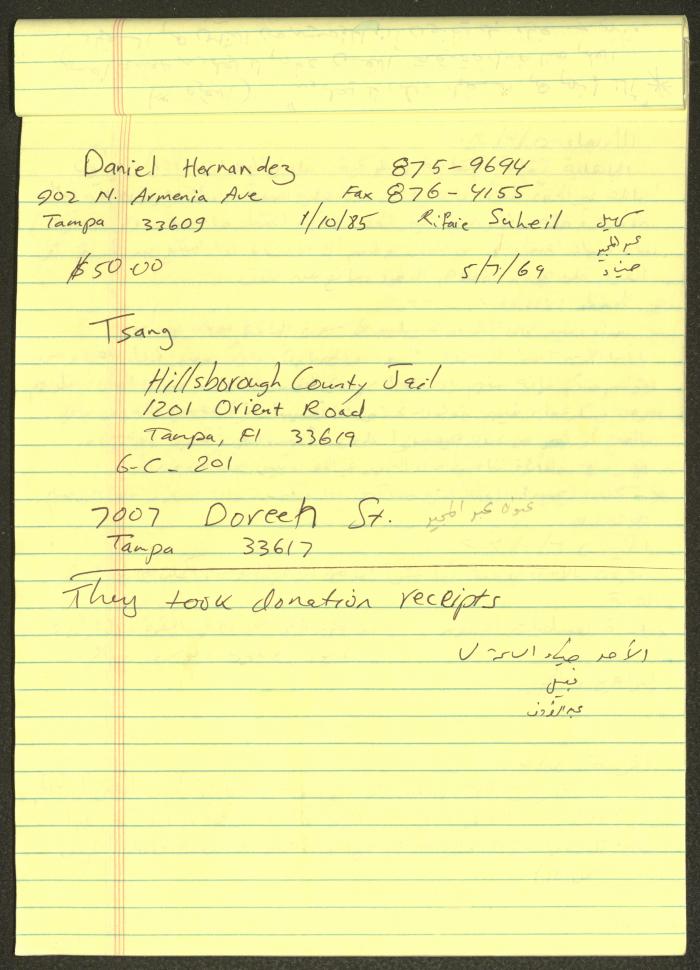 Daniel Hernandez 875-9694
902 N. Armenia Ave Fax 876-4155
Tampa 33609 1/10/85 Rifaie Suheil سهيل
عبد المجيد
$50.00 5/7/69 ضياء
Tsang
Hillsborough County Jail
1201 Orient Road
Tampa, Fl 33619
6-C-201
7007 Doreen St. عنوان عبد المجيد
Tampa 33617
They took donation receipts
الأحد ضياء الساعة ٧
نبيل
عبد الرؤوف